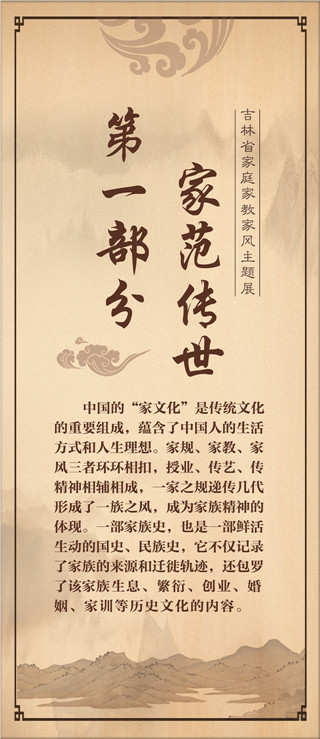 吉林省家庭家教家风主题展
第一部分
家范传世
中国的“家文化”是传统文化
的重要组成，蕴含了中国人的生活
方式和人生理想。家规、家教、家
风三者环环相扣，授业、传艺、传
精神相辅相成，一家之规递传几代
形成了一族之风，成为家族精神的
体现。一部家族史，也是一部鲜活
生动的国史、民族史，它不仅记录
了家族的来源和迁徙轨迹，还包罗
了该家族生息、繁衍、创业、婚
姻、家训等历史文化的内容。